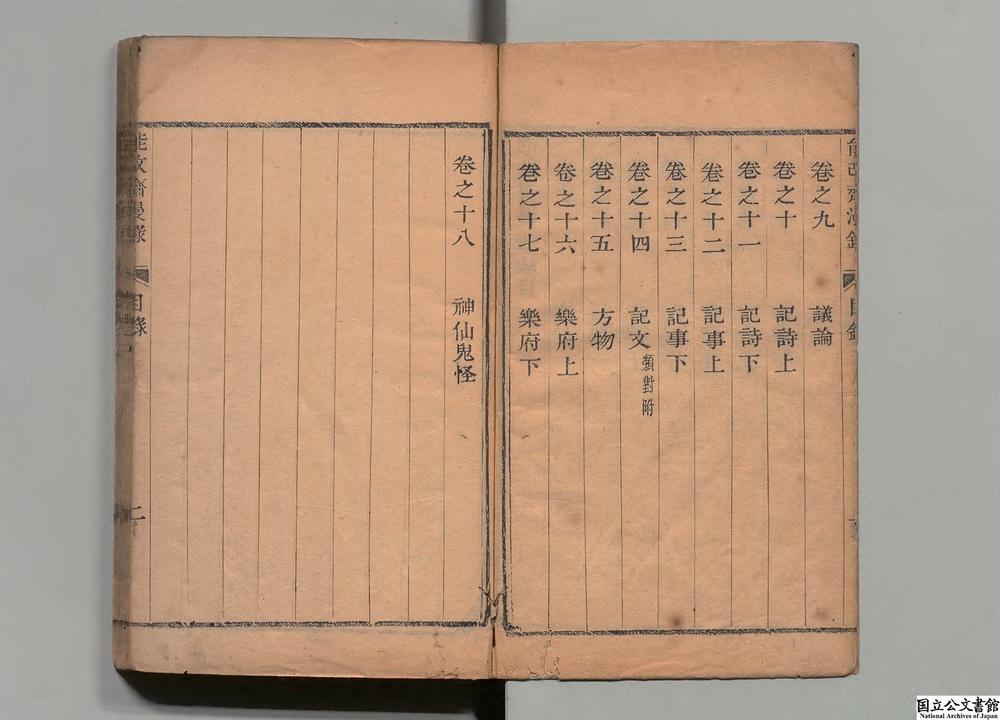 卷之九 議論
卷之十 記詩上
卷之十一 記詩下
卷之十二 記事上
卷之十三 記事下
卷之十四 記文 類對附
卷之十五 方物
卷之十六 樂府上
卷之十七 樂府下
卷之十八 神仙鬼怪
能改齋漫錄 目錄 二
国立公文書館
National Archives of Japan